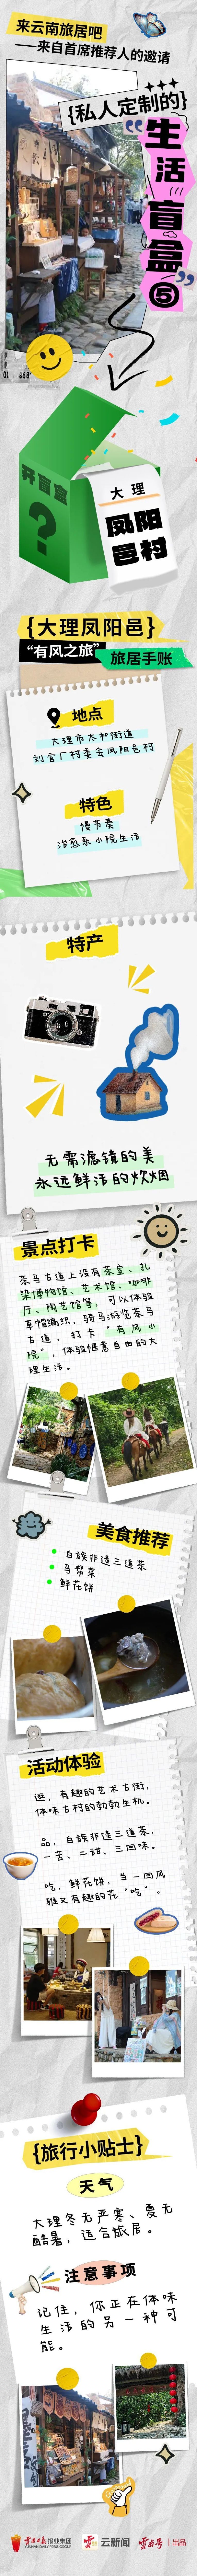 来云南旅居吧
——来自首席推荐人的邀请
{私人定制的}
“生活盲盒⑤”
开盲盒
?
大理
凤阳
邑村
{大理凤阳邑}
“有风之旅”
旅居手账
地点
大理市太和街道
刘官厂村委会凤阳邑村
特色
慢节奏
治愈系小院生活
特产
无需滤镜的美
永远鲜活的炊烟
景点打卡
茶马古道上设有茶室、扎
染博物馆、艺术馆、咖啡
厅、陶艺馆等，可以体验
草帽编织，骑马游览茶马
古道，打卡“有风小
院”，体验惬意自由的大
理生活。
美食推荐
白族非遗三道茶
马帮菜
鲜花饼
活动体验
逛，有趣的艺术古街，
体味古村的勃勃生机。
品，白族非遗三道茶，
一苦、二甜、三回味。
吃，鲜花饼，当一回风
雅又有趣的花“吃”。
{旅行小贴士}
天气
大理冬无严寒、夏无
酷暑，适合旅居。
注意事项
记住，你正在体味
生活的另一种可
能。
云南日报报业集团
YUNNAN DAILY PRESS GROUP
云新闻
云南号
出品